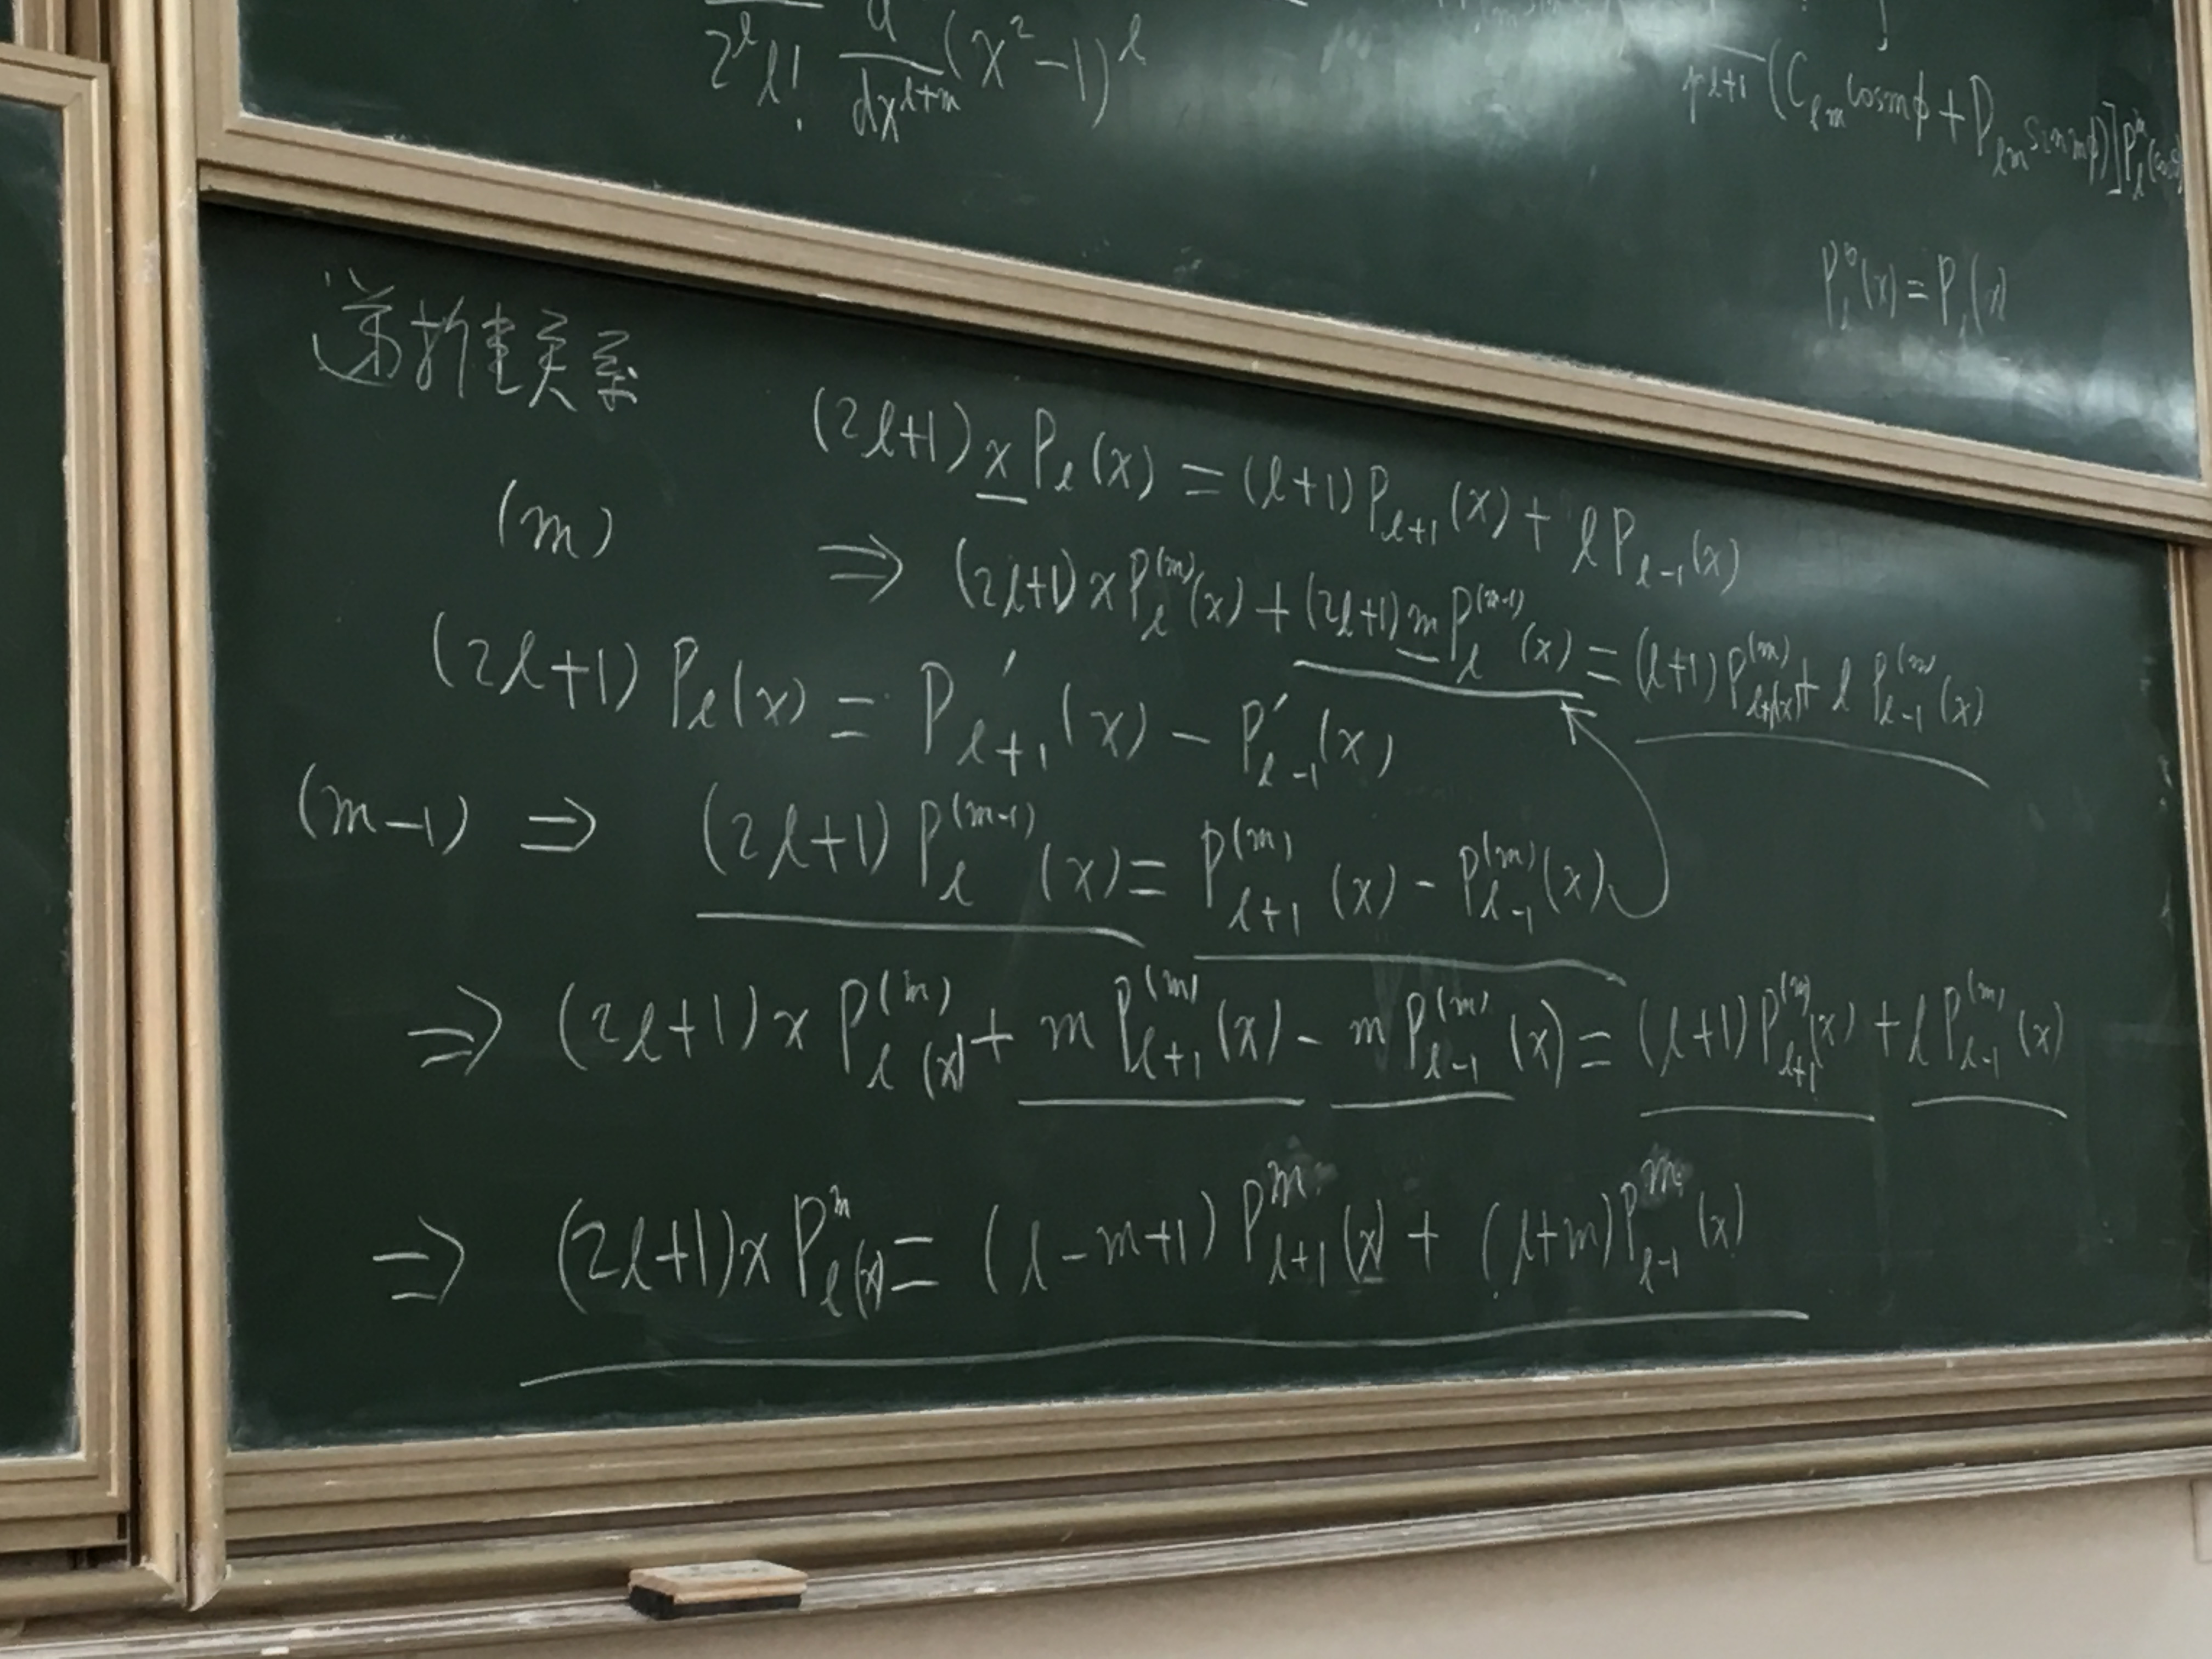 2^l l! d/dx^{l+m} (x²-1)^l
r^{l+1} (C_{lm} cos mφ + D_{lm} sin mφ)] P_l^m (cos
P_l^0(x) = P_l(x)
递推关系
(2l+1) x P_l(x) = (l+1) P_{l+1}(x) + l P_{l-1}(x)
(m) ⇒ (2l+1) x P_l^{(m)}(x) + (2l+1) m P_l^{(m-1)}(x) = (l+1) P_{l+1}^{(m)}(x) + l P_{l-1}^{(m)}(x)
(2l+1) P_l(x) = P'_{l+1}(x) - P'_{l-1}(x)
(m-1) ⇒ (2l+1) P_l^{(m-1)}(x) = P_{l+1}^{(m)}(x) - P_{l-1}^{(m)}(x)
⇒ (2l+1) x P_l^{(m)}(x) + m P_{l+1}^{(m)}(x) - m P_{l-1}^{(m)}(x) = (l+1) P_{l+1}^{(m)}(x) + l P_{l-1}^{(m)}(x)
⇒ (2l+1) x P_l^m(x) = (l-m+1) P_{l+1}^m(x) + (l+m) P_{l-1}^m(x)